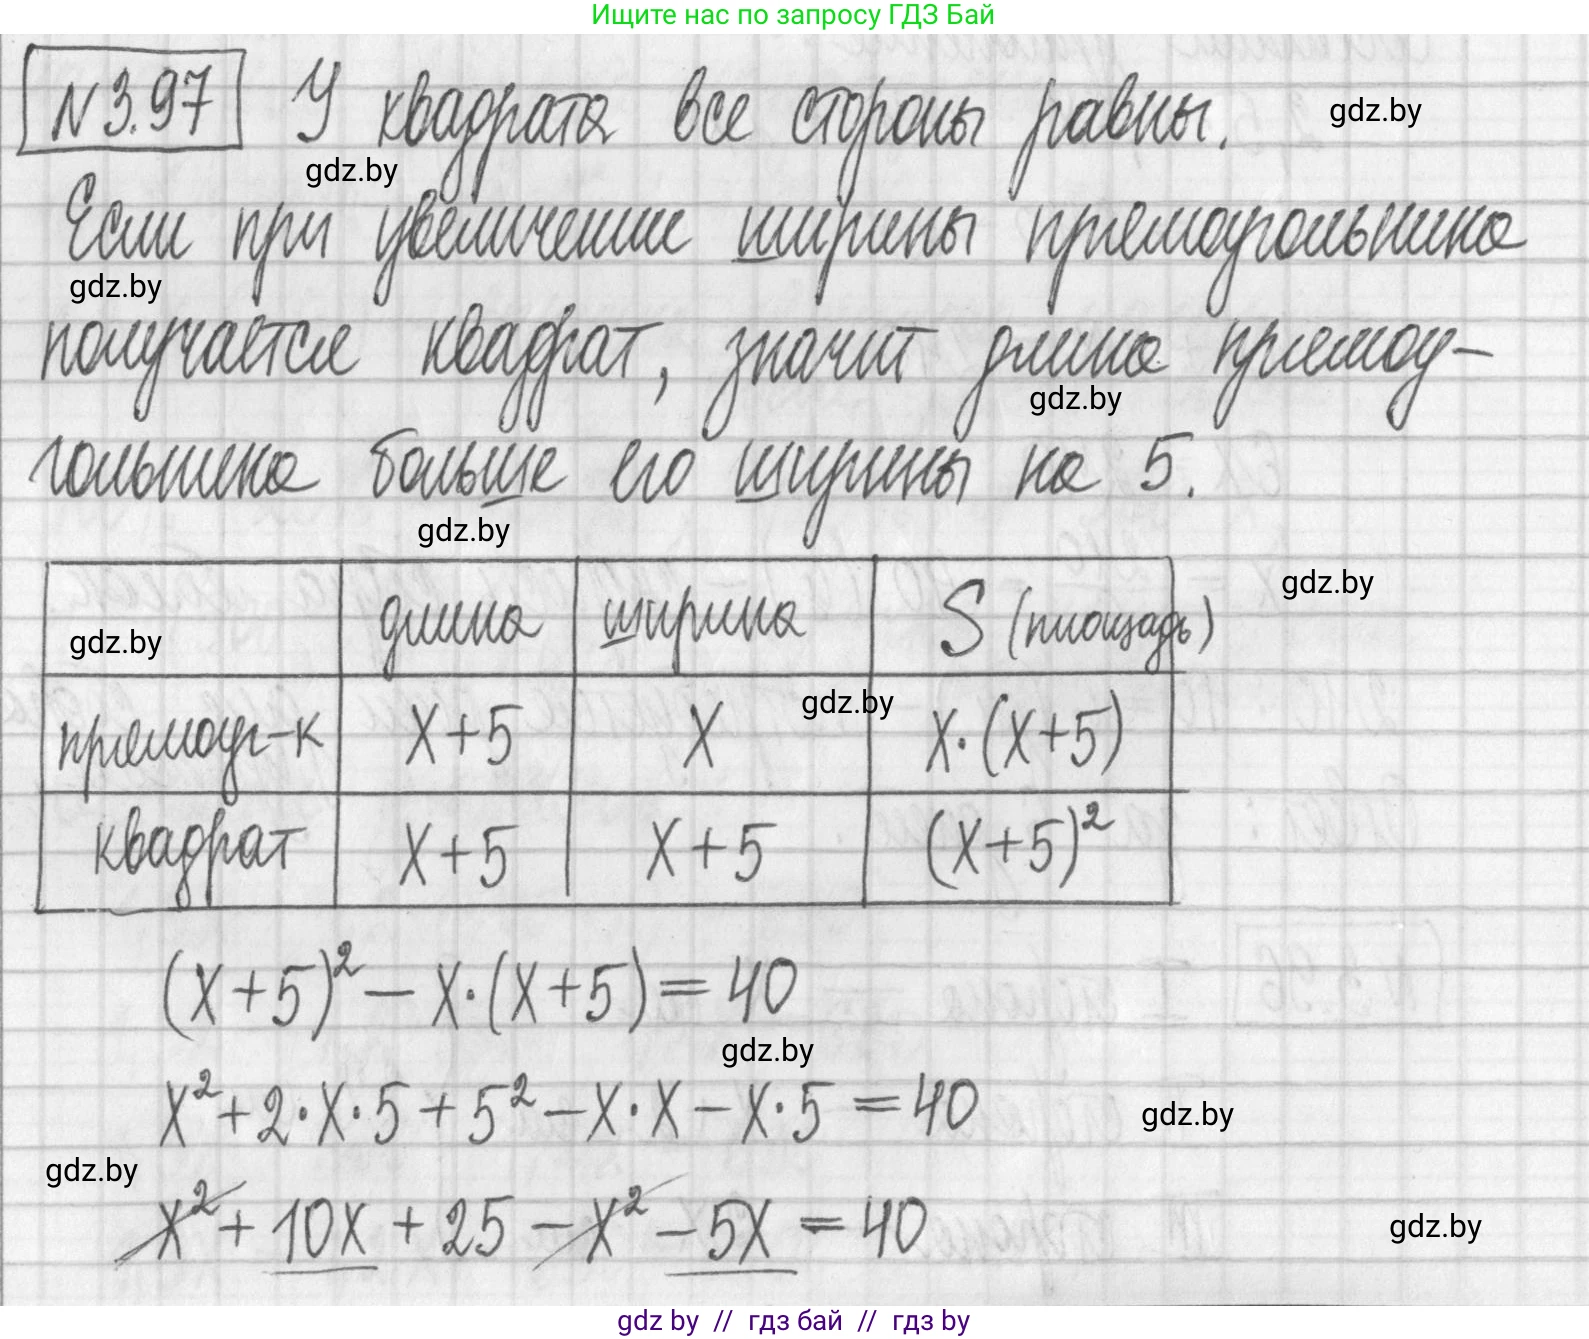 Ищите нас по запросу ГДЗ Бай
N 3.97 У квадрата все стороны равны.
gdz.by
gdz.by
Если при увеличении ширины прямоугольника
gdz.by
получается квадрат, значит длина прямоу-
gdz.by
гольника больше его ширины на 5.
gdz.by
gdz.by
gdz.by длина ширина S (площадь)
gdz.by
прямоуг-к x+5 x x·(x+5)
квадрат x+5 x+5 (x+5)²
(x+5)² – x·(x+5) = 40
gdz.by
x² + 2·x·5 + 5² – x·x – x·5 = 40
gdz.by
gdz.by
x² + 10x + 25 – x² – 5x = 40
gdz.by
gdz by // гдз бай // гдз by